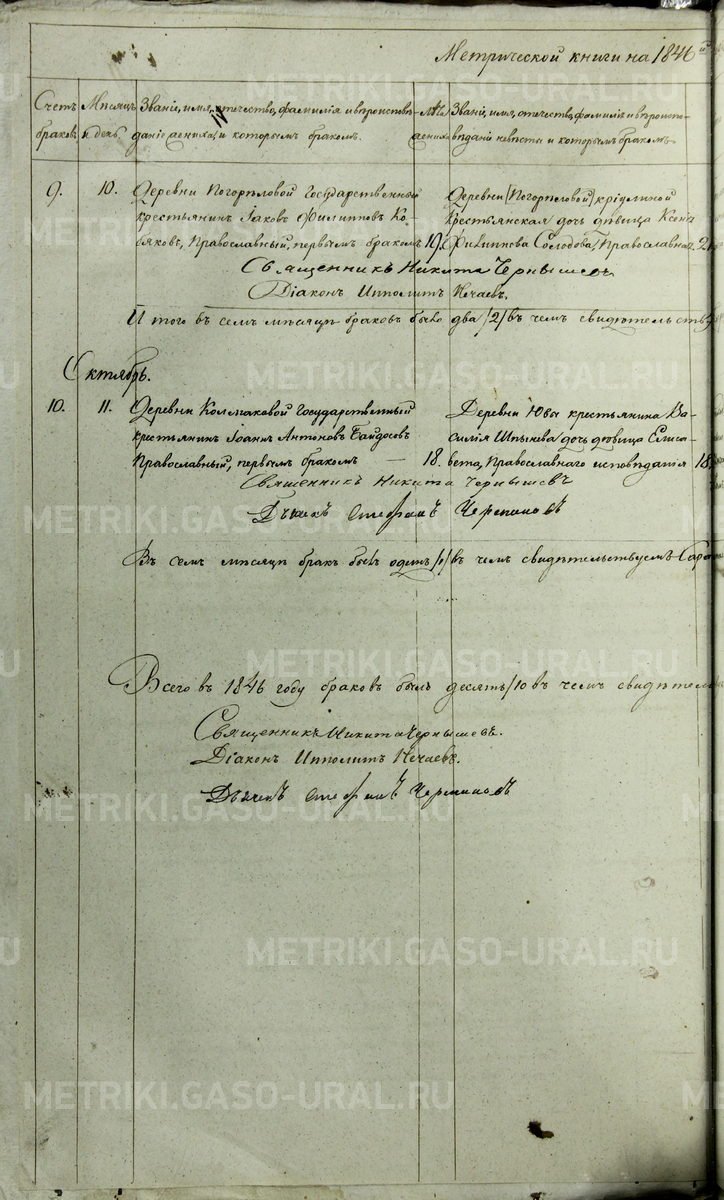 Метрической книги на 1846й
Счетъ браковъ
Мѣсяцъ и день
Званіе, имя, отечество, фамилія и вѣроисповѣ-
даніе жениха, и которымъ бракомъ.
Лѣта жениха
Званіе, имя, отечество, фамилія и вѣроиспо-
вѣданіе невѣсты и которымъ бракомъ
IV
9. 10. Деревни Погорѣловой Государственный
крестьянинъ Іаковъ Филипповъ Ко-
бяковъ, Православный, первымъ бракомъ 19.
Деревни /Погорѣловой/ Кріулиной
Крестьянская дочь дѣвица Ксенія
Филиппова Солодова /Православная. 2
Священникъ Никита Чернышевъ
Діаконъ Ипполитъ Нечаевъ.
И того въ семъ мѣсяцѣ браковъ было два /2/ въ чемъ свидѣтельству
Октябрь.
10. 11. Деревни Колмаковой Государственный
крестьянинъ Іоаннъ Антоновъ Байдосовъ
Православный, первымъ бракомъ — 18.
Деревни Юва крестьянина Ва-
силія Шпынева дочь дѣвица Елиса-
вета, Православнаго исповѣданія 18.
Священникъ Никита Чернышевъ
Дьячекъ Стефанъ
Въ семъ мѣсяцѣ бракъ былъ одинъ /1/ въ чемъ свидѣтельствуемъ Сара
Всего въ 1846 году браковъ было десять /10 въ чемъ свидѣтель
Священникъ Никита Чернышевъ.
Діаконъ Ипполитъ Нечаевъ.
Дьячекъ Стефанъ
METRIKI.GASO-URAL.RU